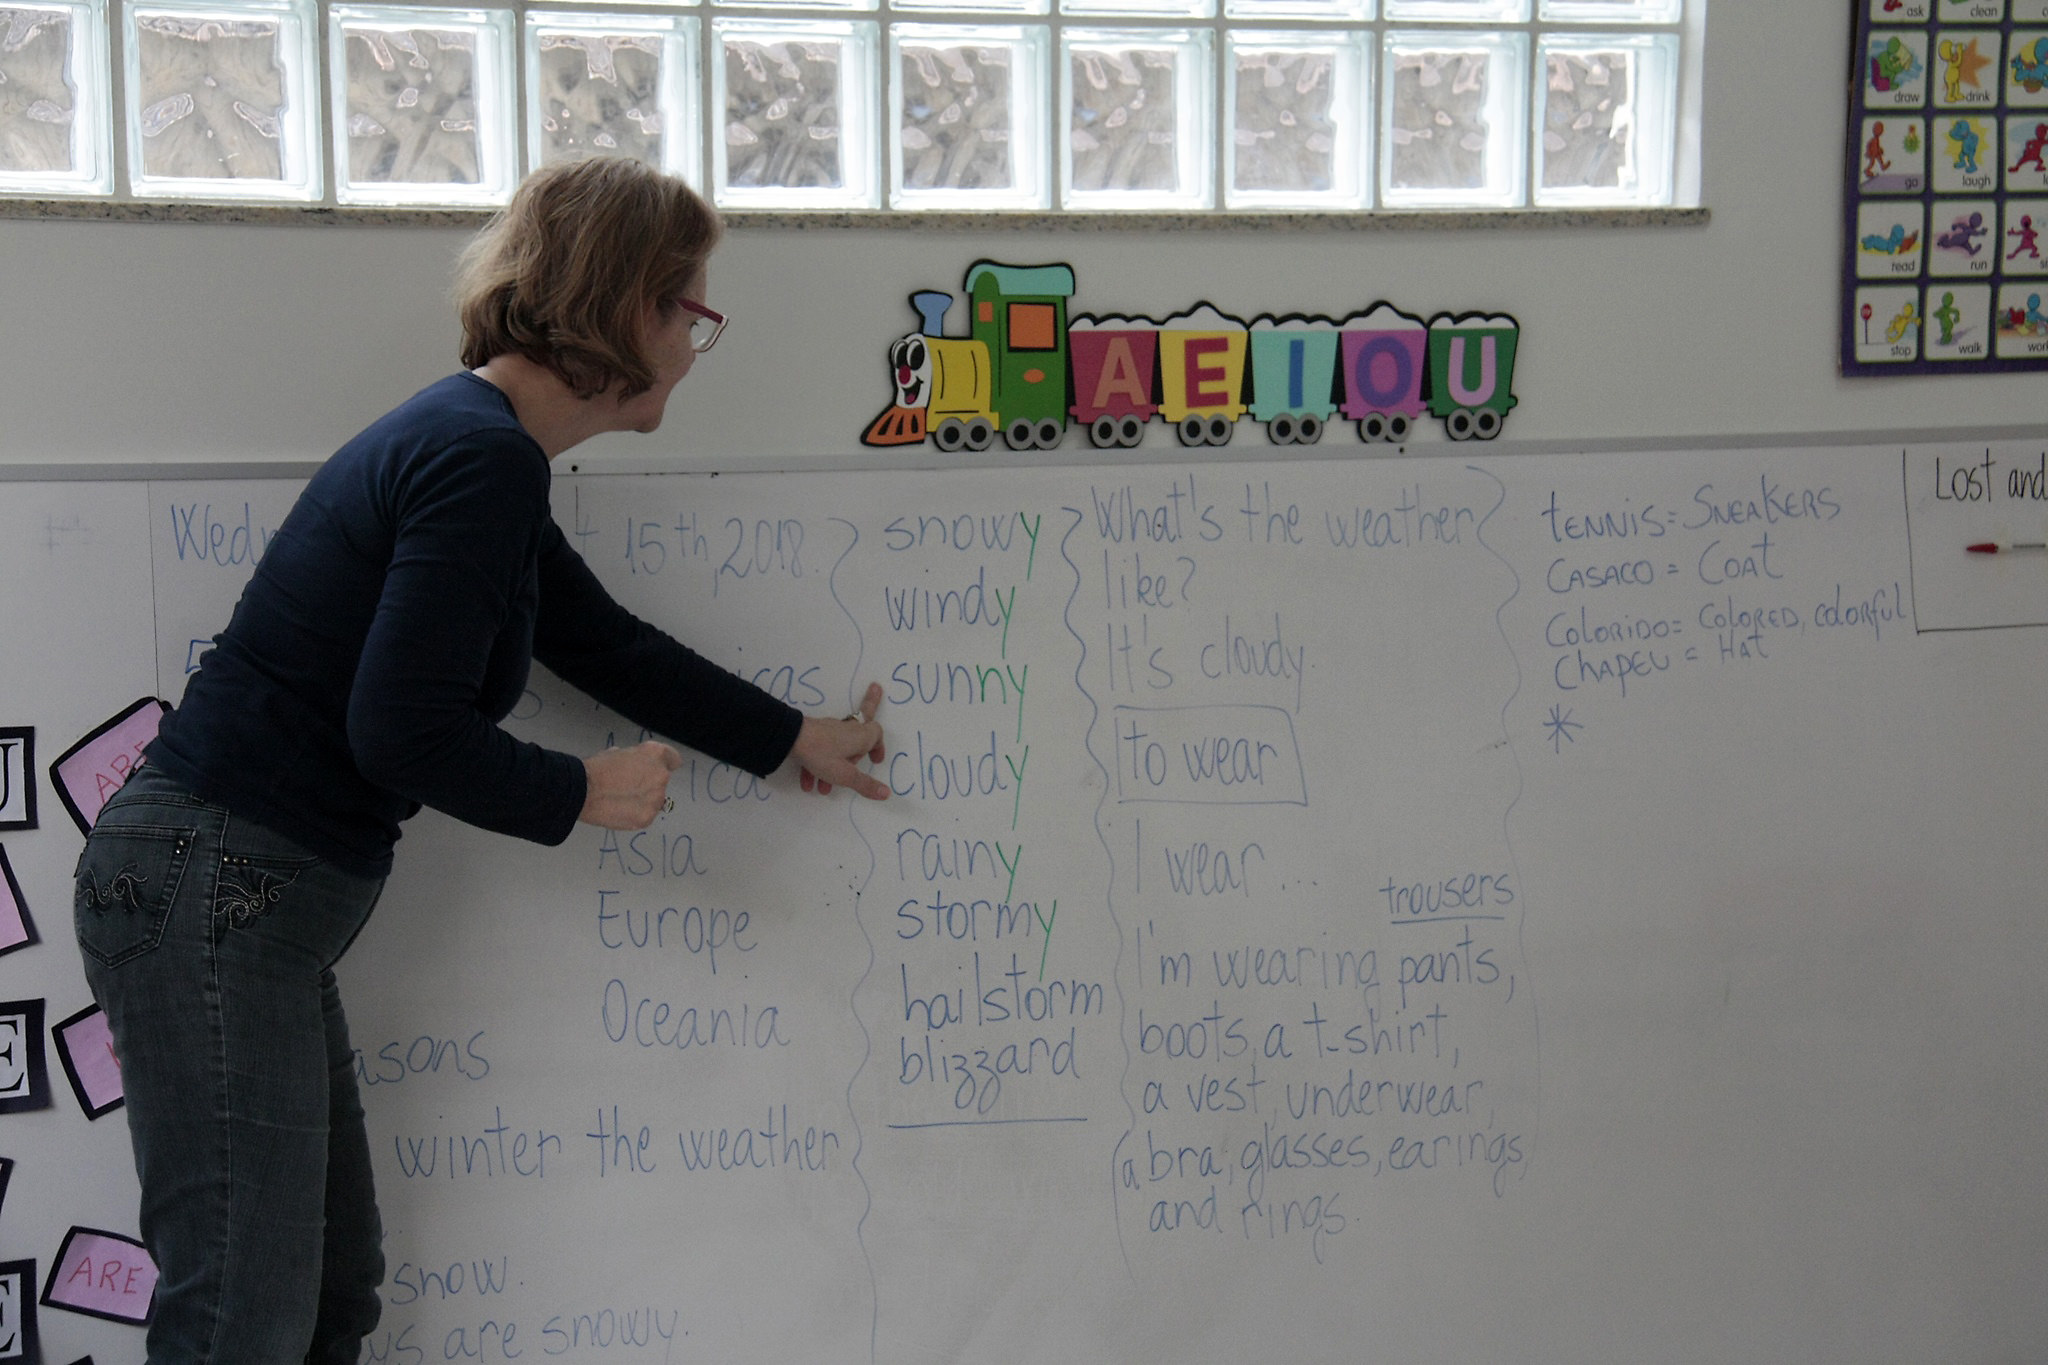 ask
clean
draw
drink
go
laugh
read
run
stop
walk
A E I O U
15th, 2018.
Asia
Europe
Oceania
winter the weather
snow.
are snowy.
snowy
windy
sunny
cloudy
rainy
stormy
hailstorm
blizzard
What's the weather
like?
It's cloudy.
to wear
I wear...
trousers
I'm wearing pants,
boots, a t-shirt,
a vest, underwear,
a bra, glasses, earings,
and rings.
tENNIS = SNEAKERS
CASACO = COAt
COLORIDO = COLORED, colorful
CHAPEU = HAt
*
LOSt and
ARE